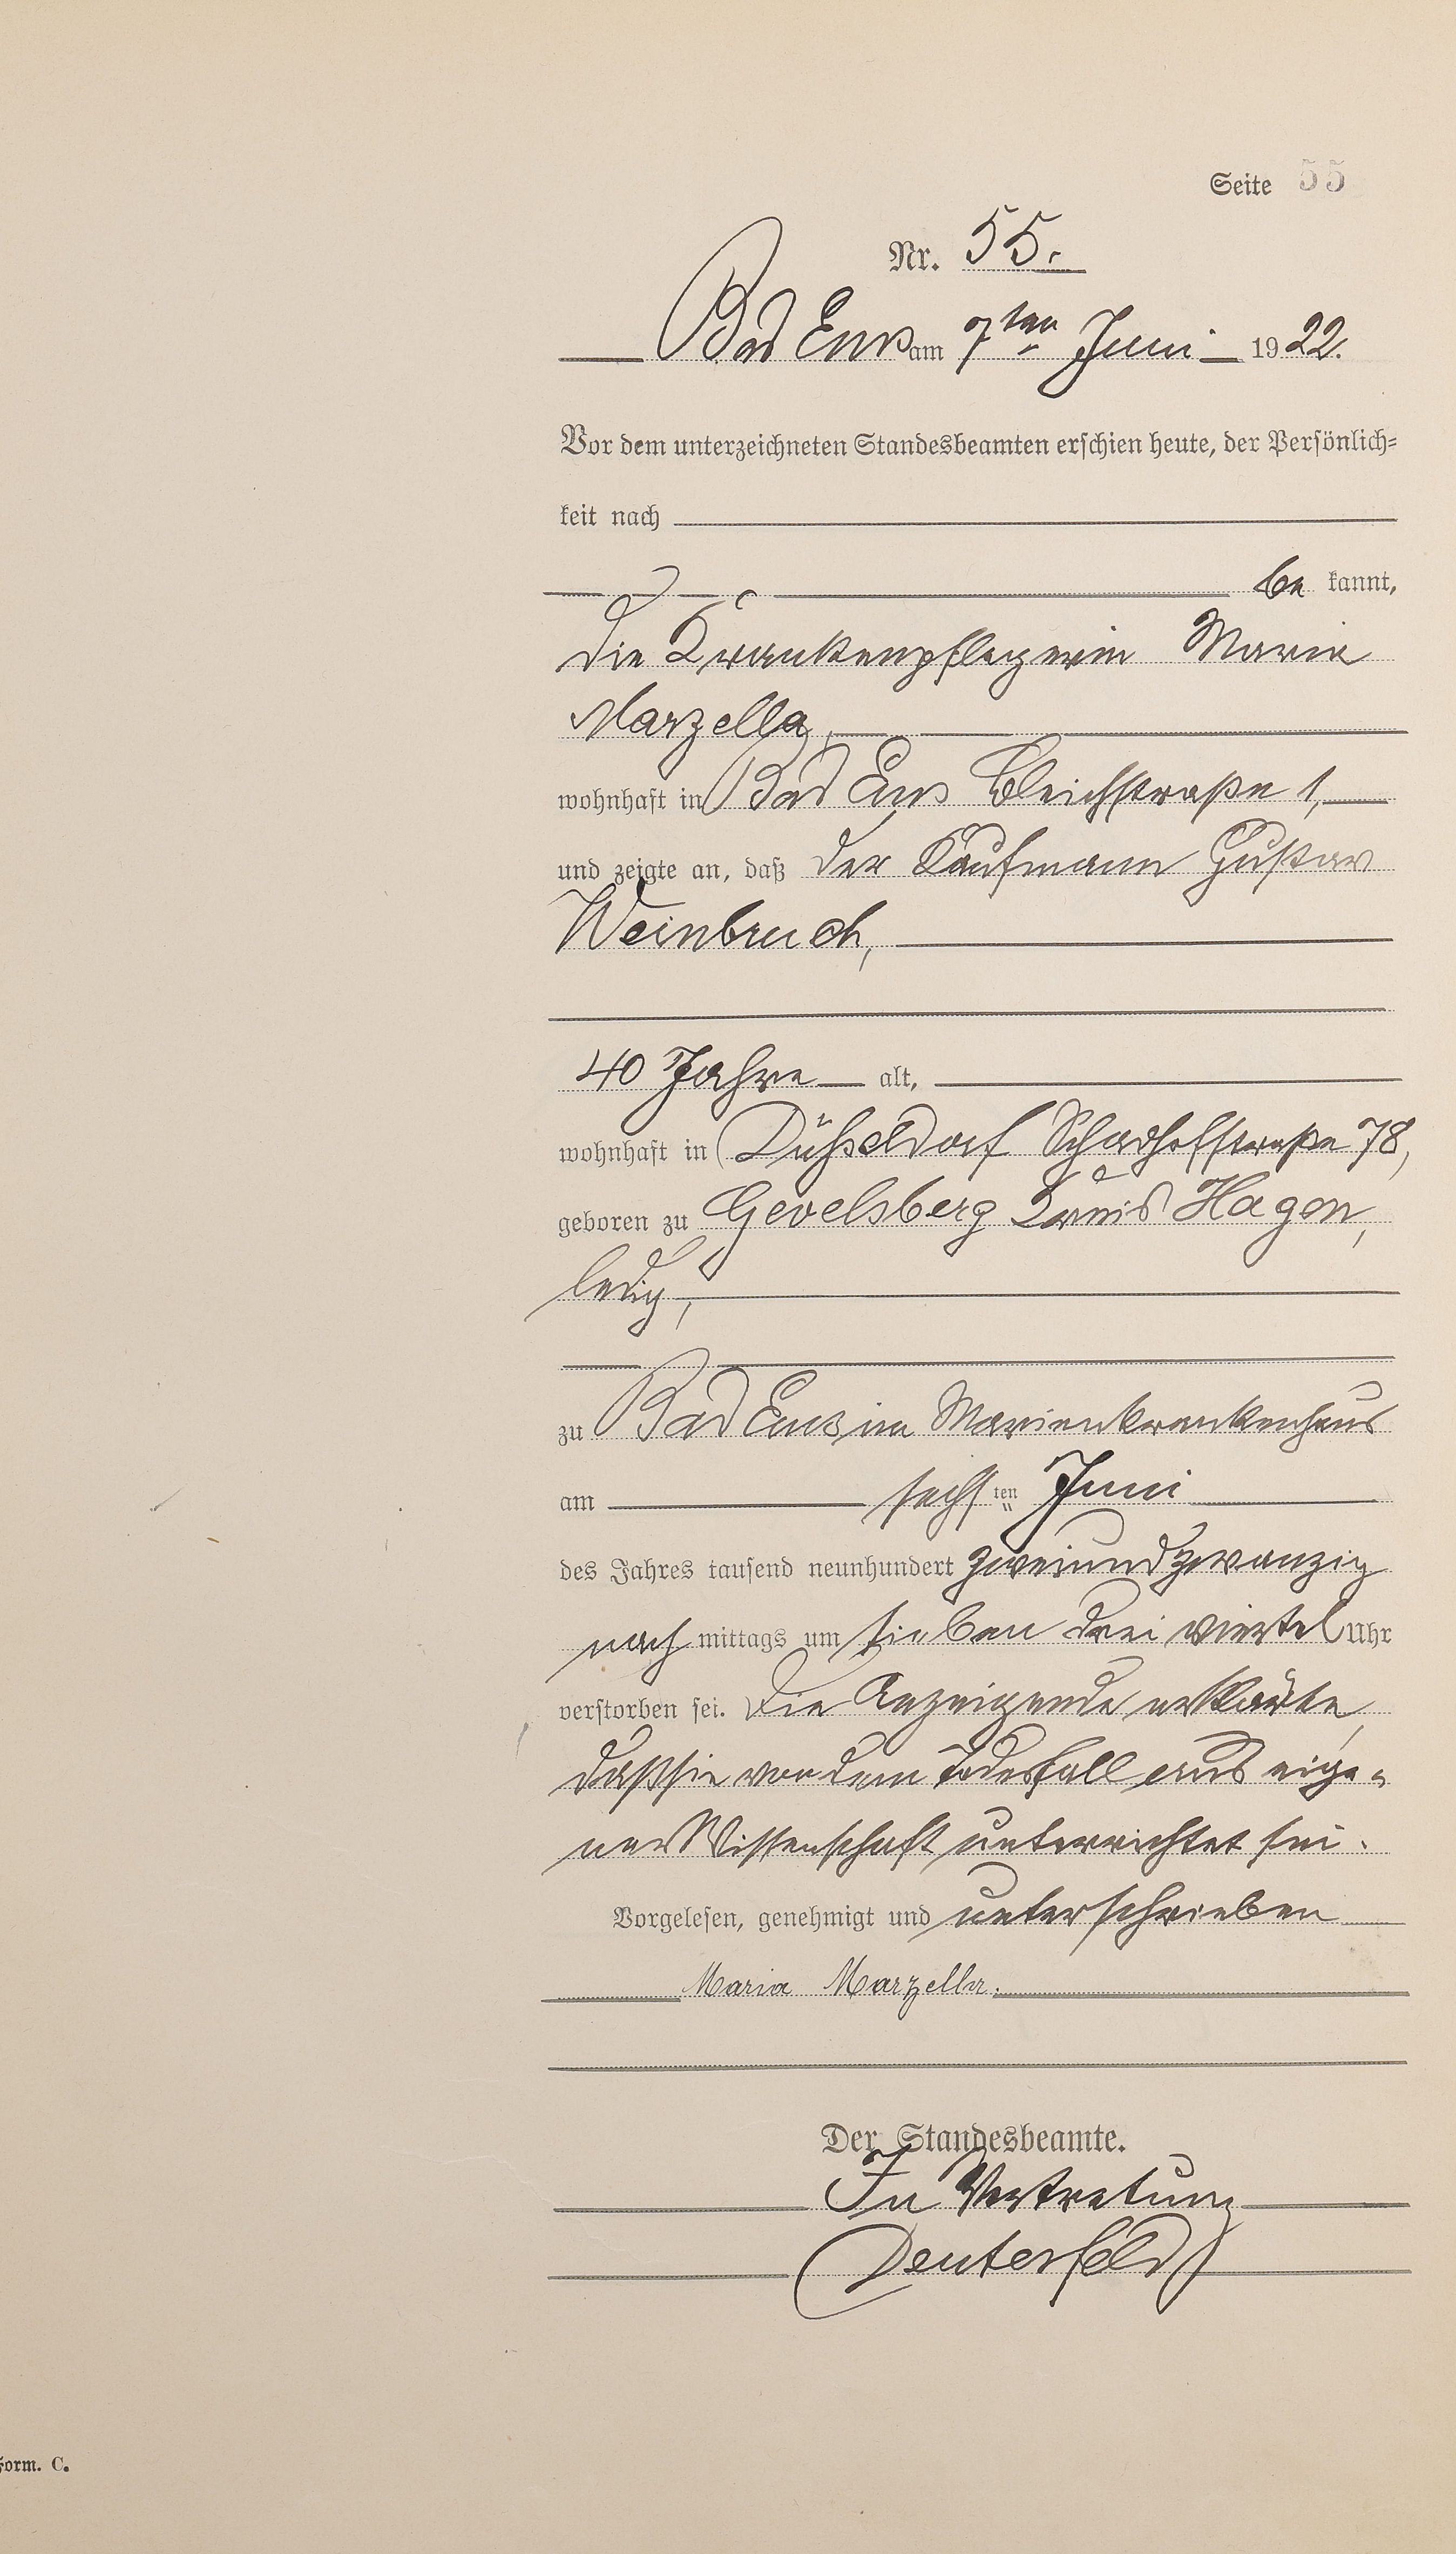 Seite 55
Nr. 55.
Bad Ems am 7ten Juni 1922.
Vor dem unterzeichneten Standesbeamten erschien heute, der Persönlich-
keit nach
be kannt,
die Krankenpflegerin Maria
Marzella,
wohnhaft in Bad Ems Bleichstraße 1,
und zeigte an, daß der Kaufmann Gustav
Weinbruch,
40 Jahre alt,
wohnhaft in Düsseldorf 78,
geboren zu Gevelsberg Kreis Hagen,
ledig,
zu Bad Ems im Marienkrankenhaus
am sechsten Juni
des Jahres tausend neunhundert zweiundzwanzig
nach mittags um sieben drei viertel Uhr
verstorben sei. Die Anzeigende erklärte,
daß sie von dem Todesfall aus eige-
ner Wissenschaft unterrichtet sei.
Vorgelesen, genehmigt und unterschrieben
Maria Marzella.
Der Standesbeamte.
In Vertretung
Deuterfeld
Form. C.